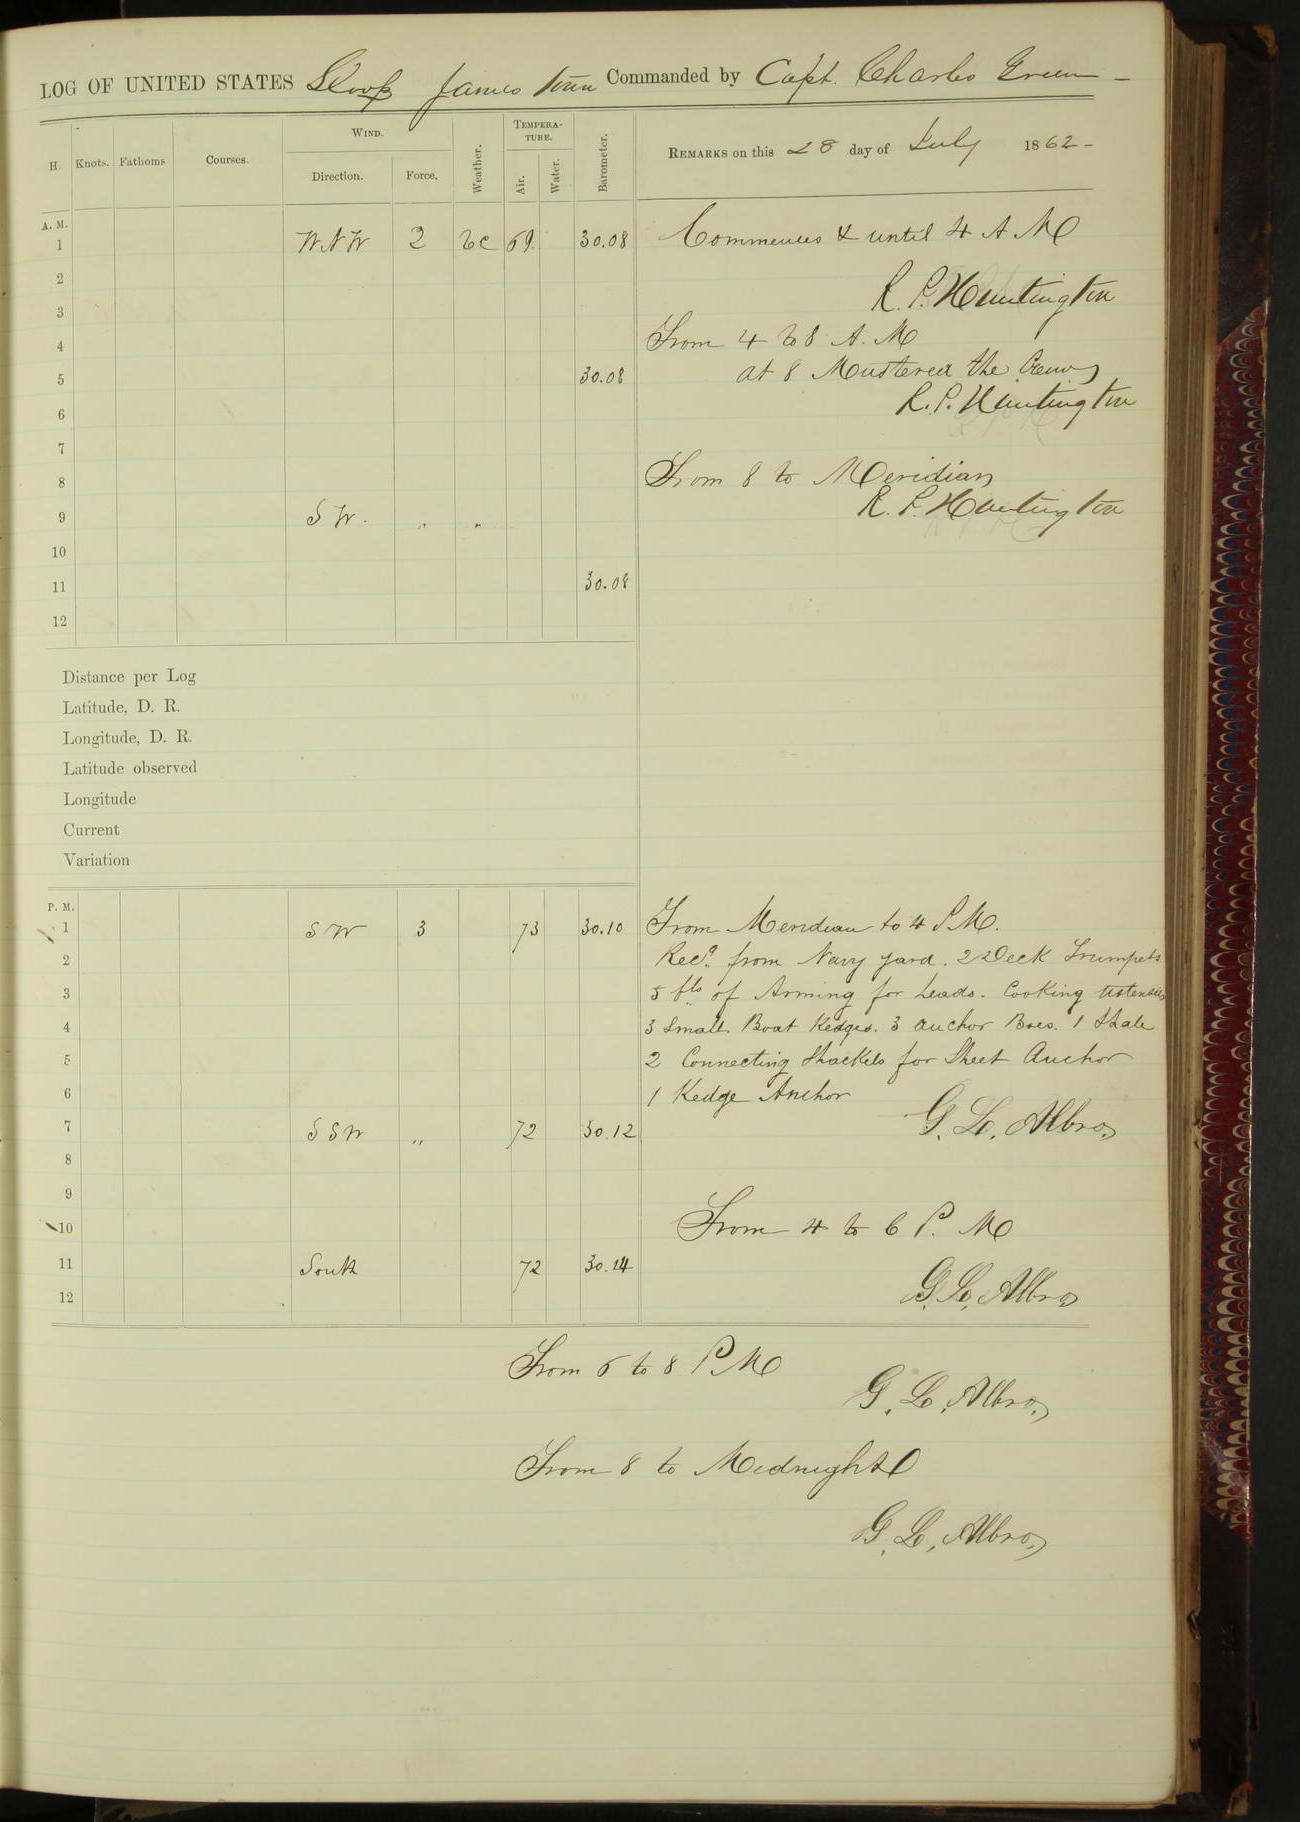 LOG OF UNITED STATES Sloop James town Commanded by Capt. Charles Green -
H. Knots. Fathoms Courses. WIND. Direction. Force. Weather. TEMPERATURE. Air. Water. Barometer. REMARKS on this 28 day of July 1862-
A. M.
1 WNW 2 bc 69. 30.08 Commences & until 4 A M
2
R. P. Huntington
3
4 From 4 to 8 A. M
5 30.08 at 8 Mustered the Crew
6 R. P. Huntington
7
8 From 8 to Meridian
9 S W. " " R. P. Huntington
10
11 30.08
12
Distance per Log
Latitude, D. R.
Longitude, D. R.
Latitude observed
Longitude
Current
Variation
P. M.
1 S W 3 73 30.10 From Meridian to 4 P M.
2 Recd. from Navy yard. 2 Deck Trumpets
3 5 lbs of Arming for Leads. Cooking Utensils
4 3 Small Boat Kedges. 3 anchor 1
5 2 Connecting Shackels for Sheet Anchor
6 1 Kedge Anchor
7 S S W " 72 30.12 G. L. Albro,
8
9
10 From 4 to 6 P. M
11 South 72 30.14
12 G. L. Albro
From 6 to 8 P M
G. L. Albro,
From 8 to Midnight
G. L. Albro,